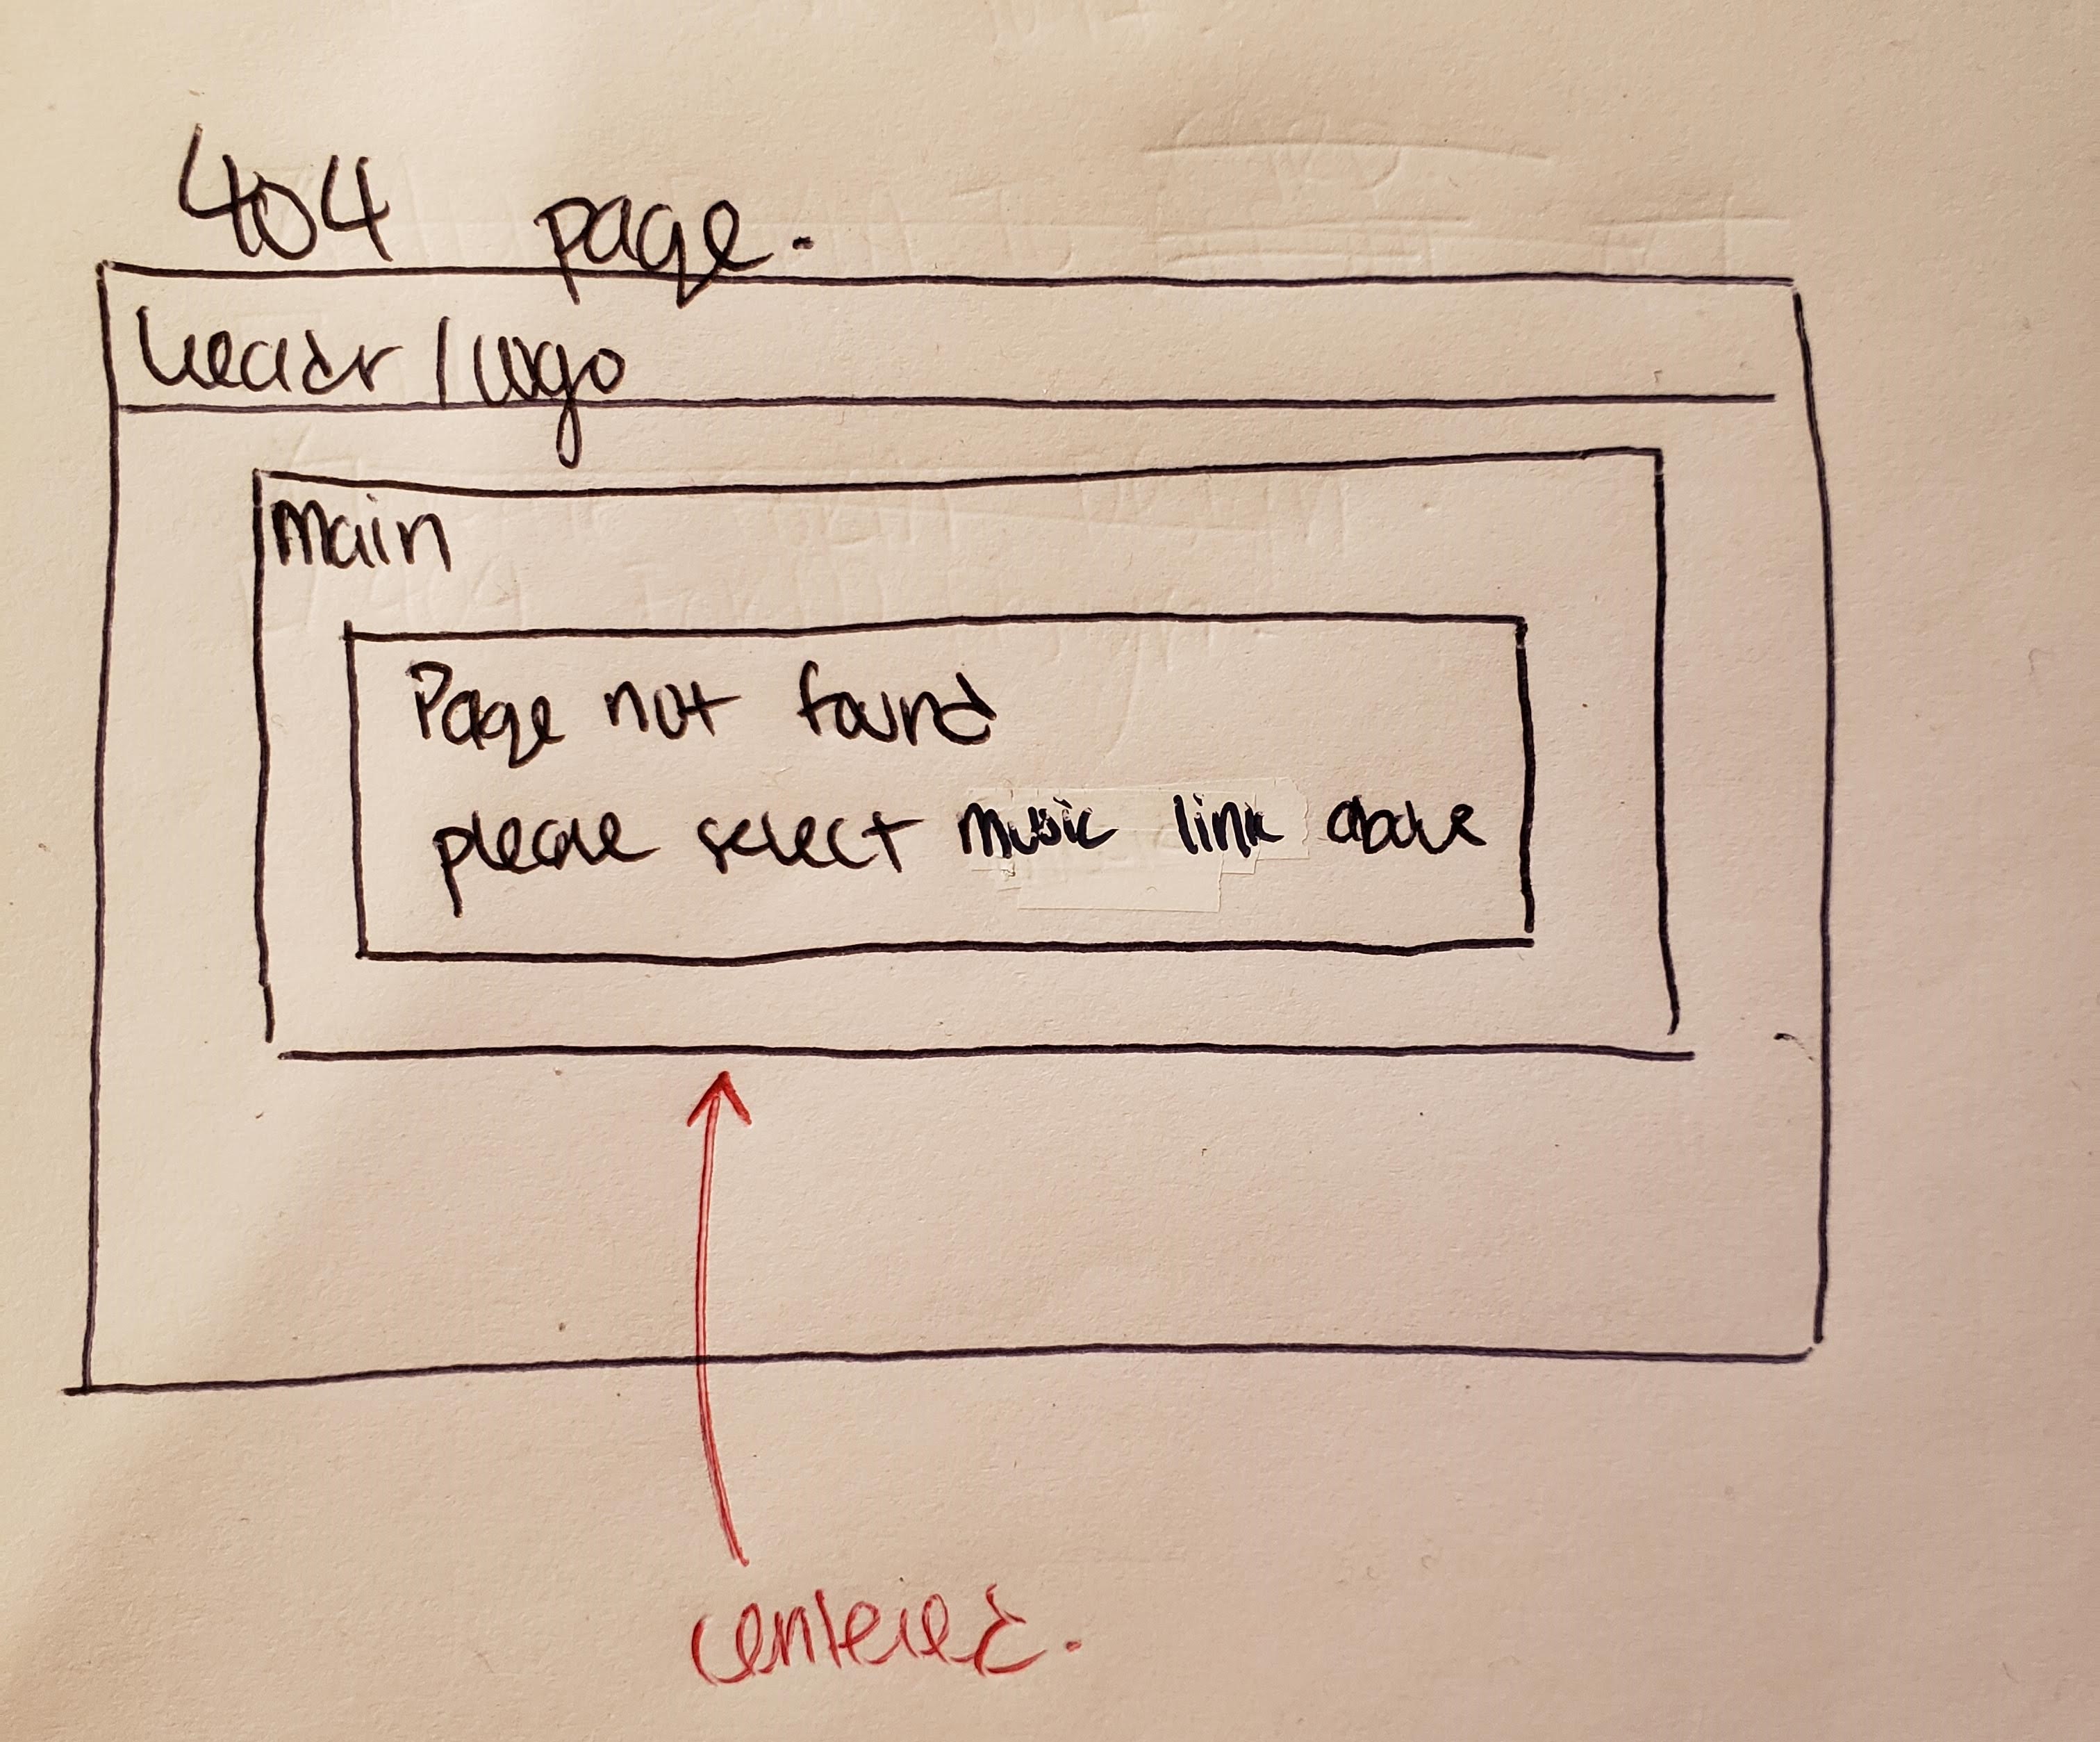 404 page.
header / logo
main
Page not found
please select music link above
centered.